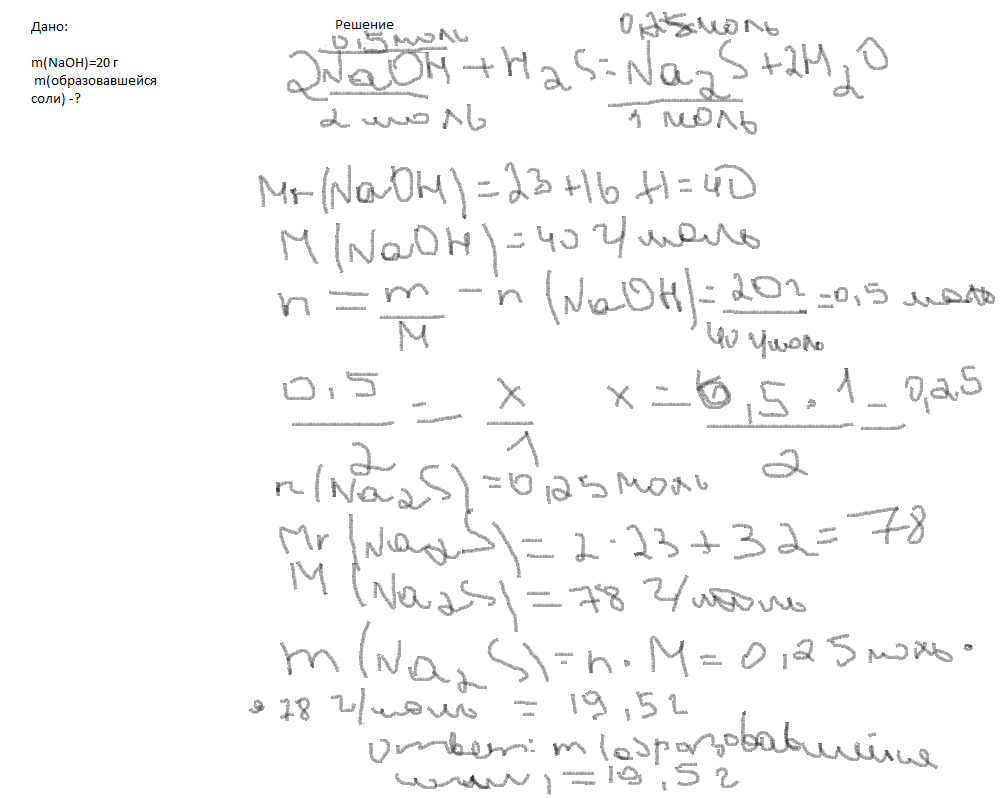 Дано:
m(NaOH)=20 г
m(образовавшейся
соли) -?
Решение
0,5 моль 0,25 моль
2NaOH + H2S = Na2S + 2H2O
2 моль 1 моль
Mr(NaOH) = 23 + 16 + 1 = 40
M(NaOH) = 40 г/моль
n = m/M - n(NaOH) = 20г/40 г/моль = 0,5 моль
0,5/2 = x/1 x = 0,5 · 1/2 = 0,25
n(Na2S) = 0,25 моль
Mr(Na2S) = 2 · 23 + 32 = 78
M(Na2S) = 78 г/моль
m(Na2S) = n · M = 0,25 моль ·
· 78 г/моль = 19,5г
ответ: m(образовавшейся
соли) = 19,5г